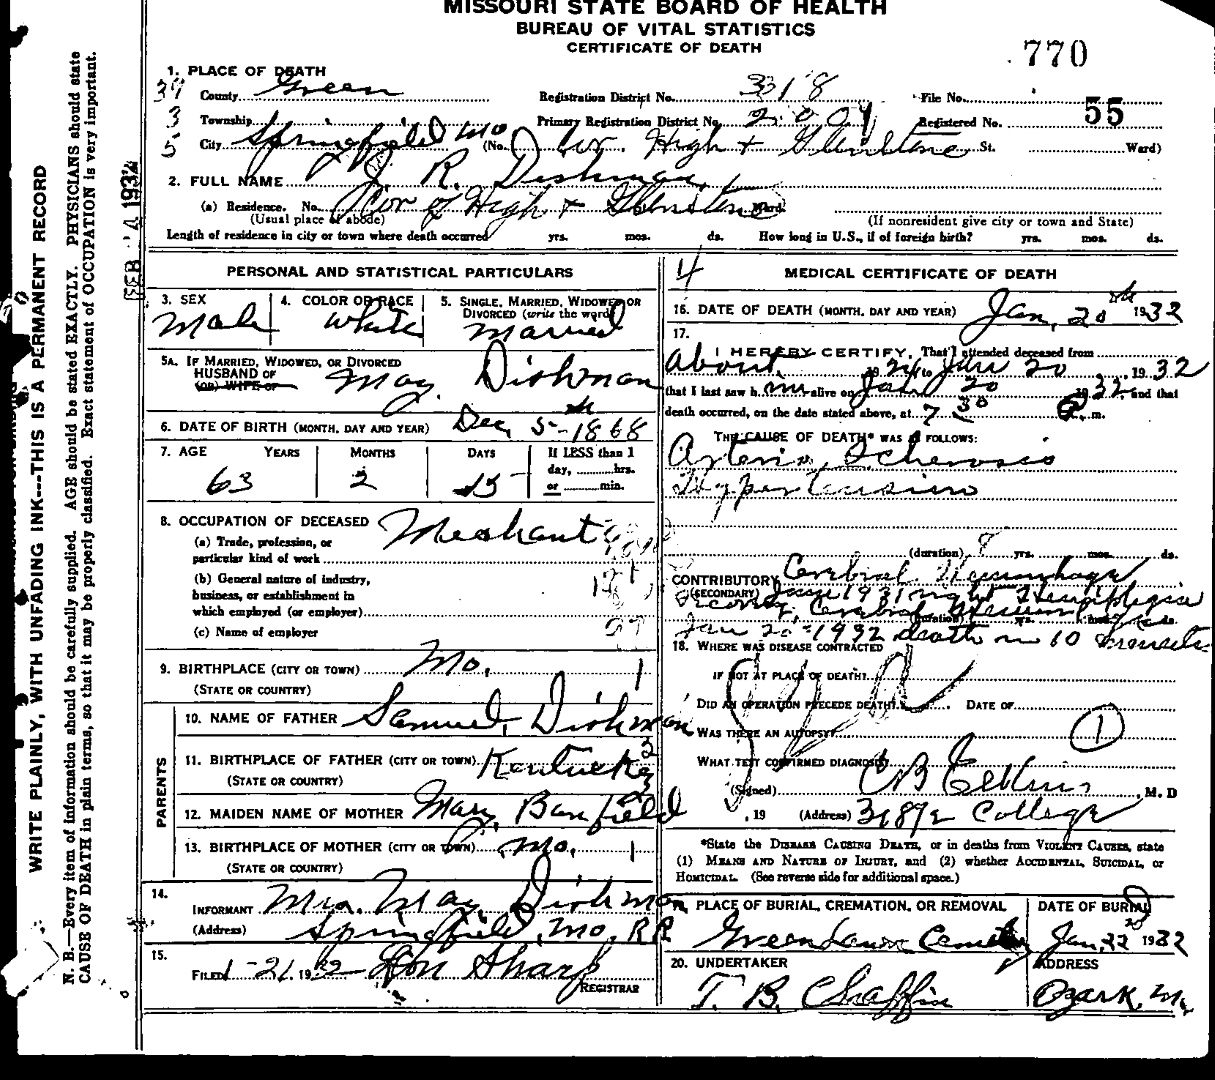 MISSOURI STATE BOARD OF HEALTH
BUREAU OF VITAL STATISTICS
CERTIFICATE OF DEATH
770
1. PLACE OF DEATH
County Green Registration District No. 318 File No.
Township Primary Registration District No. 2001 Registered No. 55
City Springfield Mo (No. Cor. High + Glenstone St. Ward)
2. FULL NAME J. R. Dishman
(a) Residence. No. Cor of High + Glenstone Ward.
(Usual place of abode) (If nonresident give city or town and State)
Length of residence in city or town where death occurred yrs. mos. ds. How long in U.S., if of foreign birth? yrs. mos. ds.
PERSONAL AND STATISTICAL PARTICULARS
3. SEX 4. COLOR OR RACE 5. SINGLE, MARRIED, WIDOWED OR DIVORCED (write the word)
Male White Married
5A. IF MARRIED, WIDOWED, OR DIVORCED
HUSBAND OF
(OR) WIFE OF May Dishman
6. DATE OF BIRTH (MONTH, DAY AND YEAR) Dec 5th 1868
7. AGE YEARS MONTHS DAYS If LESS than 1
day, hrs.
or min.
63 2 15
8. OCCUPATION OF DECEASED
(a) Trade, profession, or
particular kind of work Merchant
(b) General nature of industry,
business, or establishment in
which employed (or employer)
(c) Name of employer
9. BIRTHPLACE (CITY OR TOWN) Mo. 1
(STATE OR COUNTRY)
PARENTS
10. NAME OF FATHER Samuel Dishman
11. BIRTHPLACE OF FATHER (CITY OR TOWN) Kentucky
(STATE OR COUNTRY)
12. MAIDEN NAME OF MOTHER Mary Banfield
13. BIRTHPLACE OF MOTHER (CITY OR TOWN) Mo. 1
(STATE OR COUNTRY)
14.
INFORMANT Mrs. May Dishman
(Address) Springfield, Mo, RR
15.
FILED 1-21 1932 Don Sharp
REGISTRAR
4 MEDICAL CERTIFICATE OF DEATH
16. DATE OF DEATH (MONTH, DAY AND YEAR) Jan. 20th 1932
17.
I HEREBY CERTIFY, That I attended deceased from
About to Jan 20, 1932
that I last saw him alive on Jan 20 1932, and that
death occurred, on the date stated above, at 7 30 m.
THE CAUSE OF DEATH* WAS AS FOLLOWS:
Arterio Sclerosis
Hypertension
(duration) 8 yrs. mos. ds.
CONTRIBUTORY Cerebral Hemorrhage
(SECONDARY) June 1931 right Hemiplegia
Cerebral
(duration) yrs. mos. ds.
Jan 20-1932 death in 10 minutes
18. WHERE WAS DISEASE CONTRACTED
IF NOT AT PLACE OF DEATH?
DID AN OPERATION PRECEDE DEATH? DATE OF
WAS THERE AN AUTOPSY? 1
WHAT TEST CONFIRMED DIAGNOSIS?
(Signed) CB Elkins, M. D
, 19 (Address) 318½ E College
*State the DISEASE CAUSING DEATH, or in deaths from VIOLENT CAUSES, state
(1) MEANS AND NATURE OF INJURY, and (2) whether ACCIDENTAL, SUICIDAL, or
HOMICIDAL. (See reverse side for additional space.)
19. PLACE OF BURIAL, CREMATION, OR REMOVAL DATE OF BURIAL
Green Lawn Cemetery Jan. 22 1932
20. UNDERTAKER ADDRESS
T. B. Chaffin Ozark, Mo
WRITE PLAINLY, WITH UNFADING INK---THIS IS A PERMANENT RECORD
N. B.—Every item of information should be carefully supplied. AGE should be stated EXACTLY. PHYSICIANS should state
CAUSE OF DEATH in plain terms, so that it may be properly classified. Exact statement of OCCUPATION is very important.
FEB 4 1932